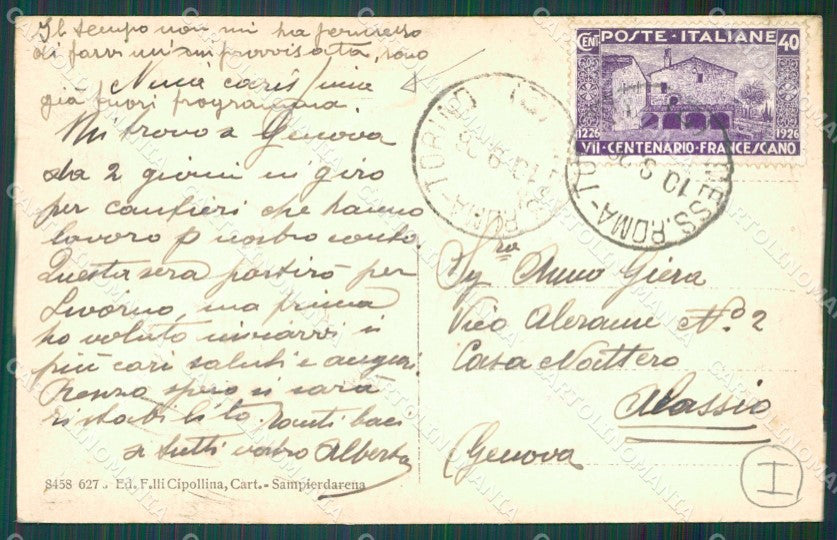 Il tempo non mi ha permesso
di farvi un'improvvisata, sono
già fuori programma
Ninì cariss/ma
Mi trovo a Genova
da 2 giorni in giro
per cantieri che hanno
lavoro p nostro conto.
Questa sera partirò per
Livorno, ma prima
ho voluto inviarvi i
più cari saluti e auguri
Renzo spero si sarà
ristabilito. Tanti baci
a tutti vostro Alberto
8458 627. Ed. F.lli Cipollina, Cart. - Sampierdarena
POSTE · ITALIANE
CENT 40
1226 1926
VII · CENTENARIO · FRANCESCANO
ROMA-TORINO
10.9.26
MESS. ROMA-TO
10 9 26
Sra
Giera
Vico Alerame No. 2
Casa Nattero
Alassio
(Genova
I
CARTOLINOMANIA